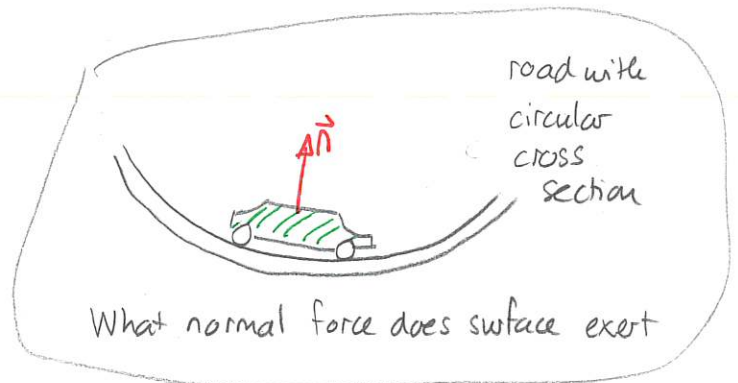 road with
circular
cross
section
n⃗
What normal force does surface exert